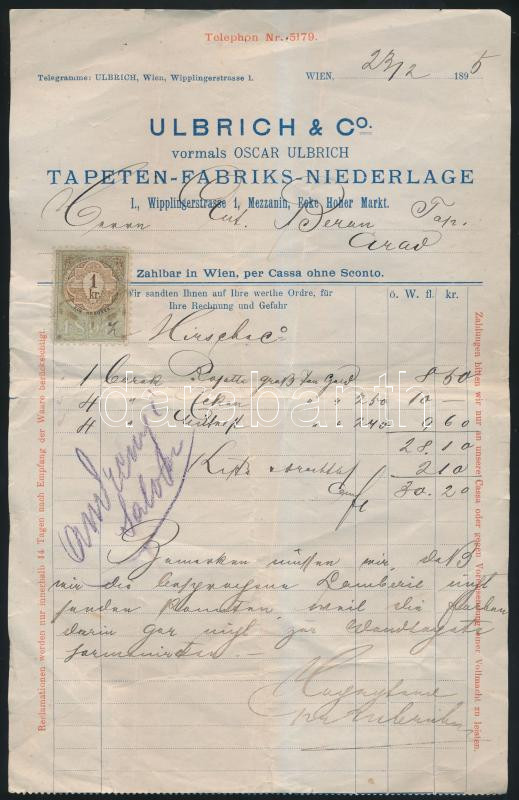 Telephon Nr. 5179.
Telegramme: ULBRICH, Wien, Wipplingerstrasse 1.
WIEN, 23/2 1895
ULBRICH & Co.
vormals OSCAR ULBRICH
TAPETEN-FABRIKS-NIEDERLAGE
I., Wipplingerstrasse 1, Mezzanin, Ecke Hoher Markt.
Herrn Ant. Beran Tap.
Arad
Zahlbar in Wien, per Cassa ohne Sconto.
Wir sandten Ihnen auf Ihre werthe Ordre, für
Ihre Rechnung und Gefahr
ö. W. fl. kr.
1
kr.
1 8.50
4 " Ecken " " 2.50 10 —
4 " " " 2.40 9.60
28.10
1 Kiste 2.10
30.20
Bemerken müssen wir, daß
wir die Lamberie nicht
senden konnten weil die Farben
darin gar nicht zur
harmonirten. —
Reclamationen werden nur innerhalb 14 Tagen nach Empfang der Waare berücksichtigt.
Zahlungen bitten wir nur an unsere Cassa oder gegen Vorweisung einer Vollmacht zu leisten.
darabanth